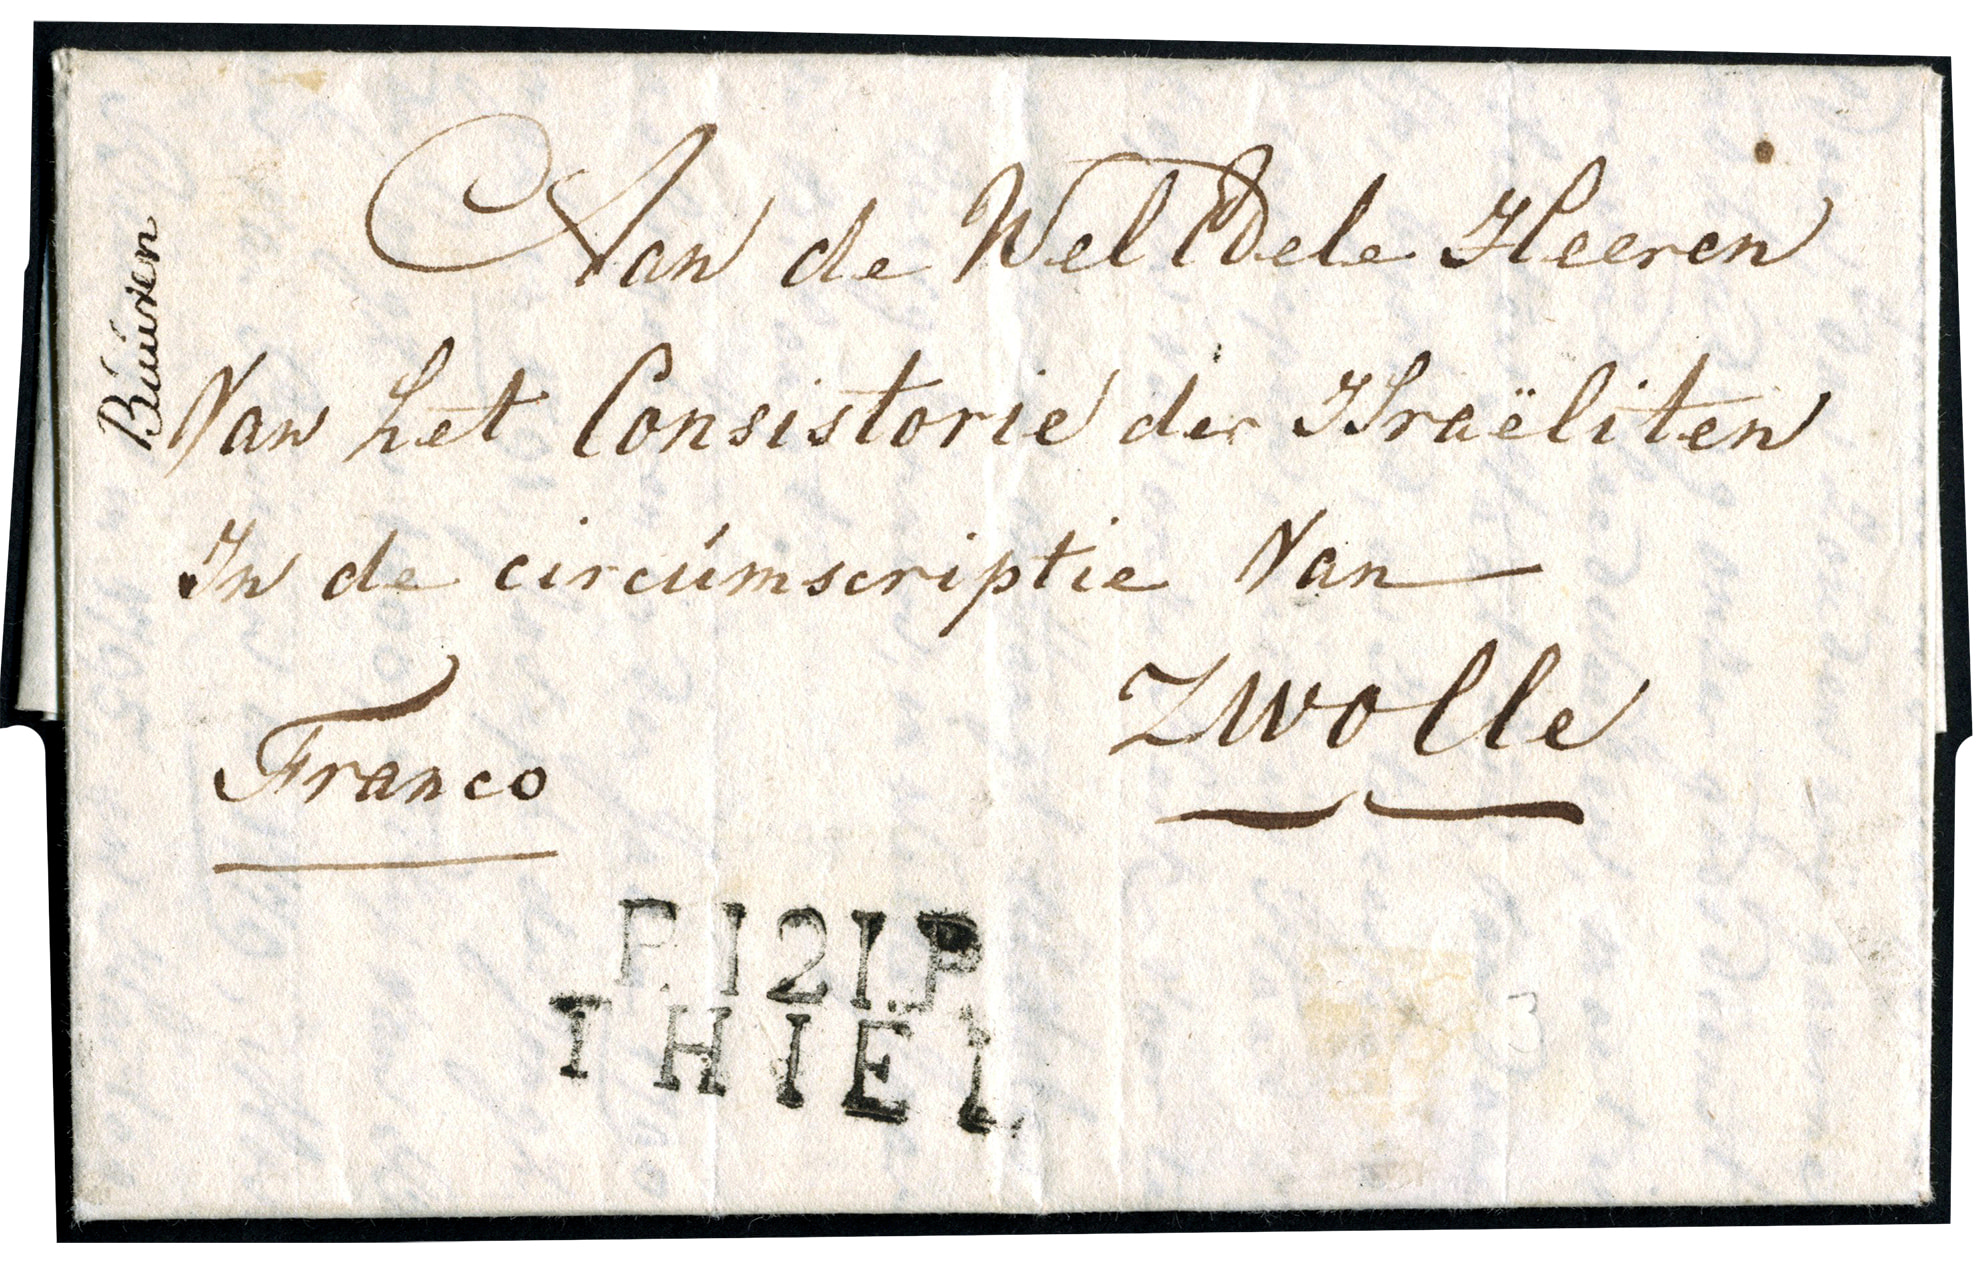 Buuren
Aan de Wel Edele Heeren
Van het Consistorie der Israëliten
In de circúmscriptie Van
Zwolle
Franco
P.121.P
THIEL
3